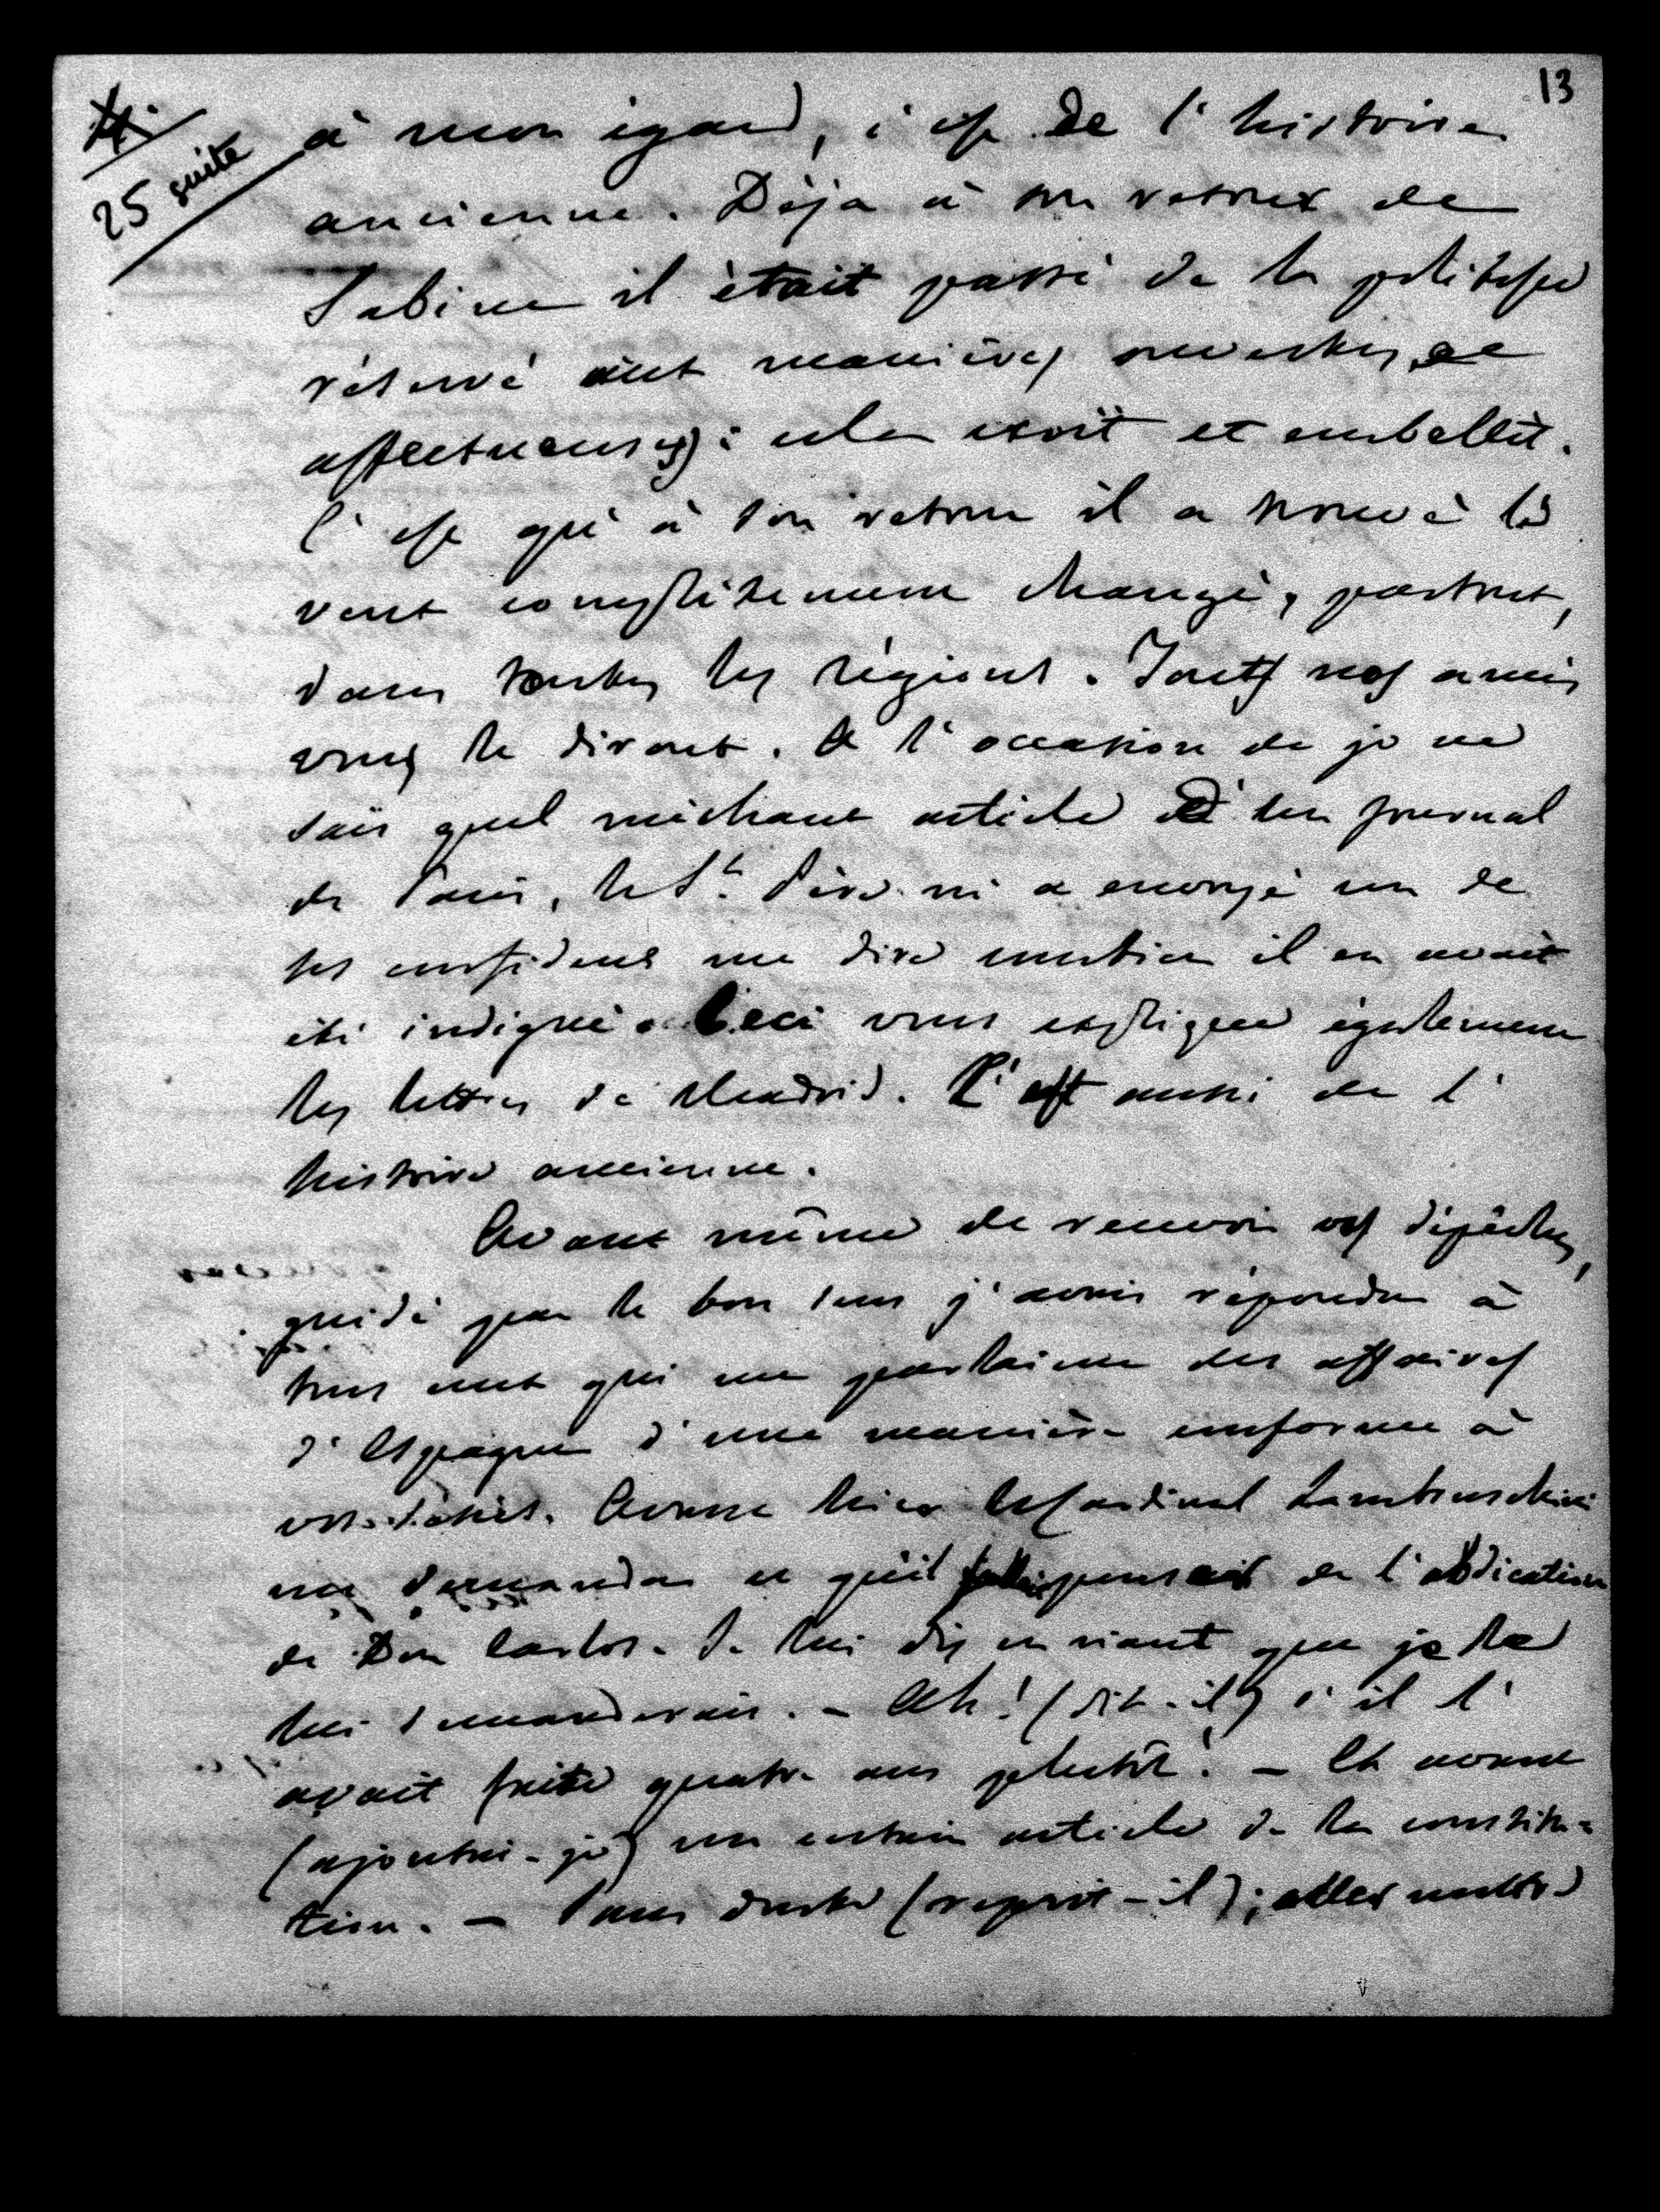 13
25 suite
à mon égard, c'est de l'histoire
ancienne. Déjà à son retour de
Sabine il était passé de la politesse
réservé aux manières ouvertes et
affectueuses : cela croît et embellit.
C'est qu'à son retour il a trouvé le
vent complètement changé, partout,
dans toutes les régions. Tous nos amis
vous le diront. A l'occasion de je ne
sais quel méchant article d'un journal
de Paris, le St. Père m'a envoyé un de
ses confidens me dire combien il en avait
été indigné. Ceci vous explique également
les lettres de Madrid. C'est aussi de l'
histoire ancienne.
Avant même de recevoir vos dépêches,
guidé par le bon sens j'avais répondu à
tous ceux qui me parlaient des affaires
d'Espagne d'une manière conforme à
vos désirs. Avant hier le Cardinal Lambruschini
me demanda ce qu'il pensait de l'abdication
de Don Carlos. Je lui dis en riant que je le
lui demanderais. - Ah! (dit-il) s'il l'
avait faite quatre ans plutôt! - Et avant
(ajoutai-je) un certain article de la constitu-
tion. - Sans doute (reprit-il);